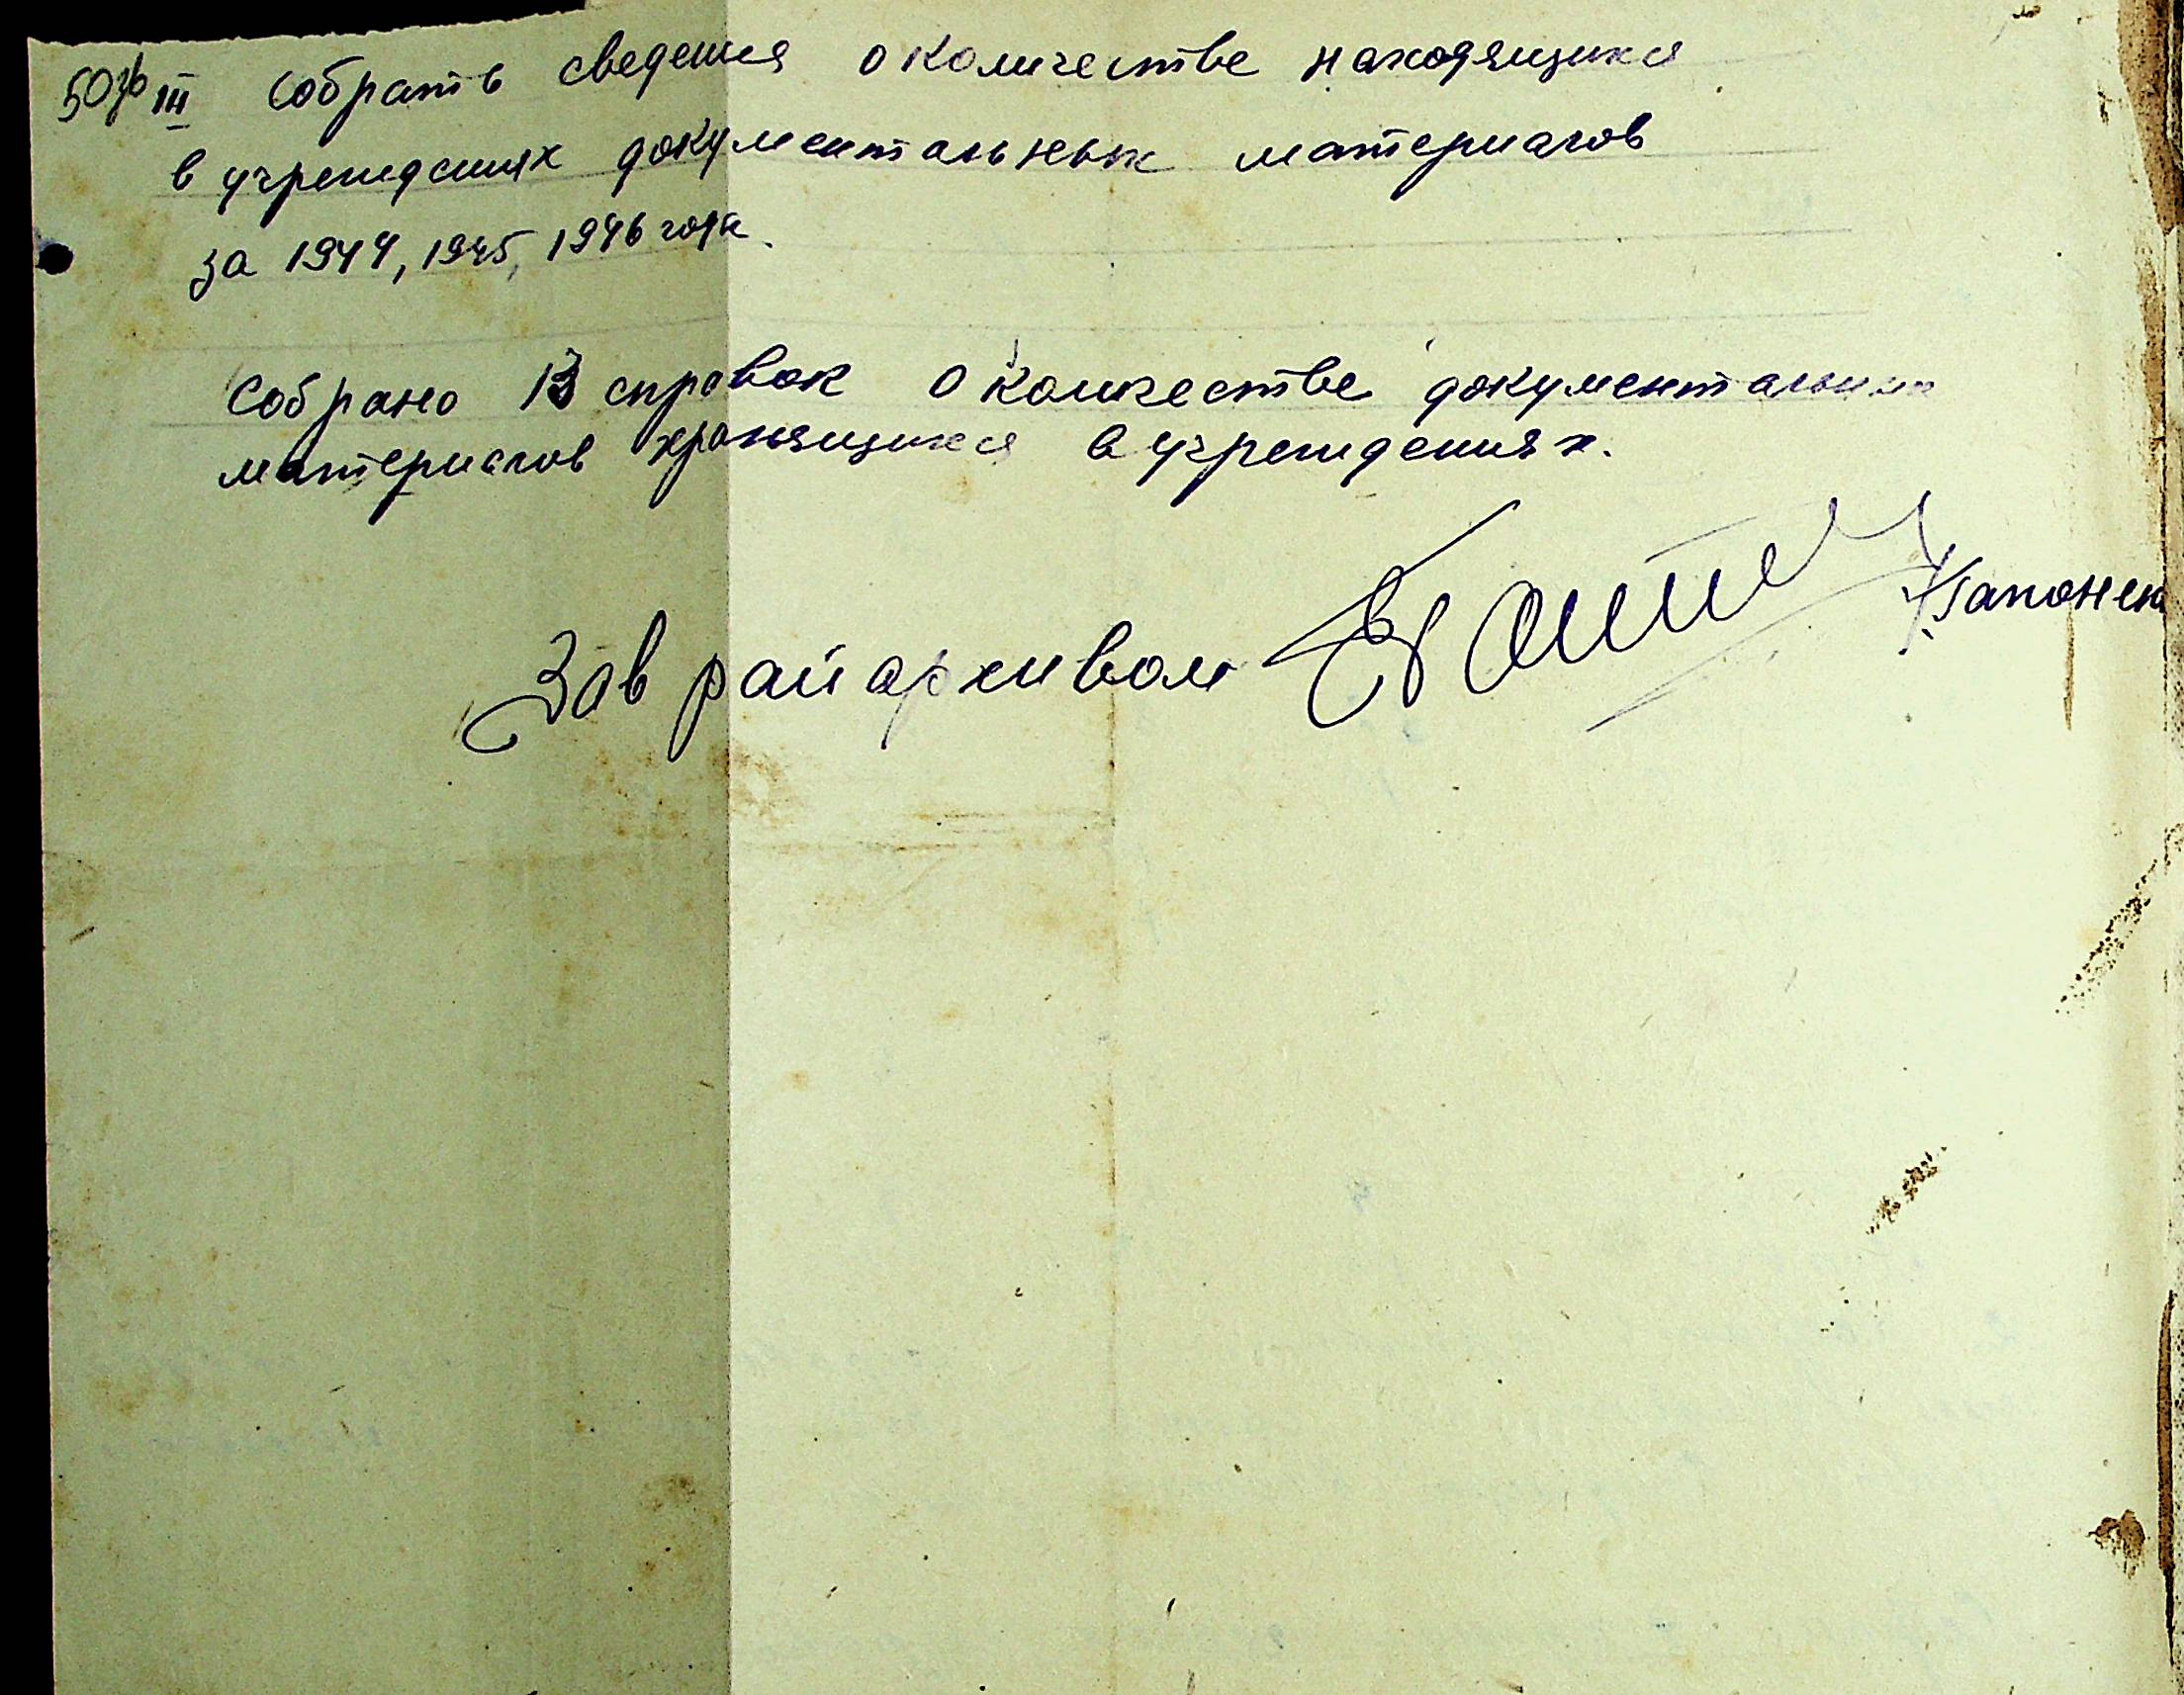 50% III Собрать сведения о количестве находящихся
в учреждениях документальных материалов
за 1944, 1945, 1946 года.
Собрано 13 справок о количестве документальных
материалов хранящихся в учреждениях.
Зав райархивом